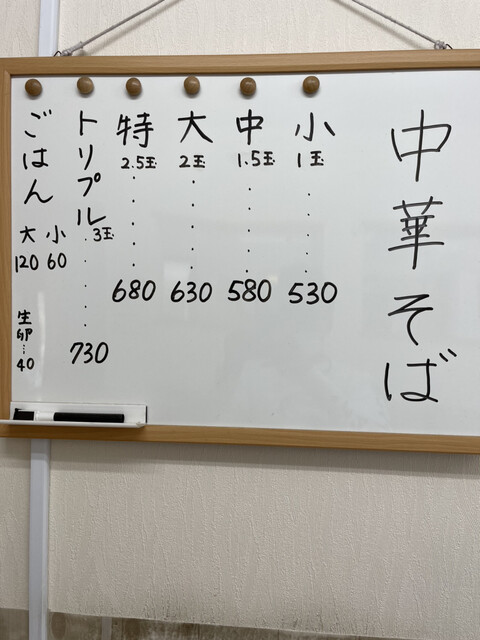 中華そば
小 1玉 ・・・・ 530
中 1.5玉 ・・・・ 580
大 2玉 ・・・・ 630
特 2.5玉 ・・・・ 680
トリプル 3玉 ・・・・・ 730
ごはん 小 60
大 120
生卵…40